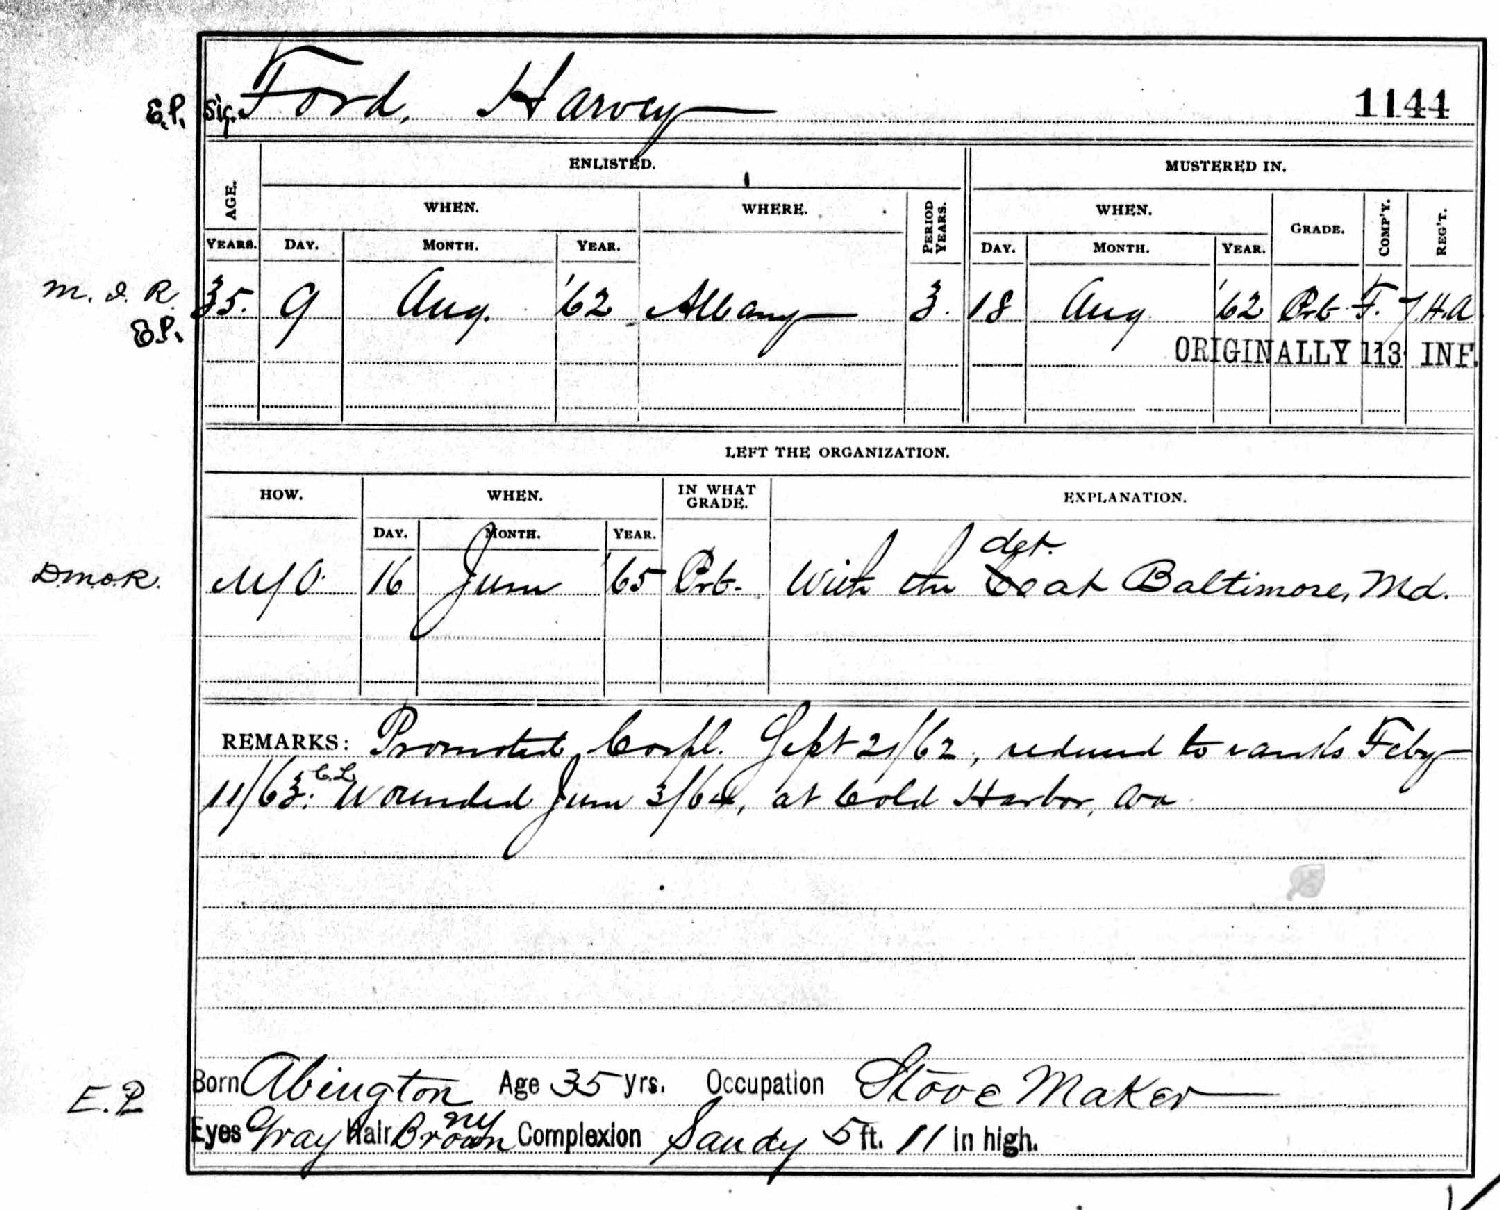 E.P. Sig. Ford, Harvey 1144
ENLISTED. MUSTERED IN.
AGE. WHEN. WHERE. PERIOD YEARS. WHEN. GRADE. COMP'Y. REG'T.
YEARS. DAY. MONTH. YEAR. DAY. MONTH. YEAR.
M. I. R. 35. 9 Aug. '62 Albany 3. 18 Aug '62 Pvt. F. 7 H.A
E.P. ORIGINALLY 113 INF.
LEFT THE ORGANIZATION.
HOW. WHEN. IN WHAT GRADE. EXPLANATION.
DAY. MONTH. YEAR.
det.
D.M.O.R. M/O. 16 June '65 Pvt. With the Co at Baltimore, Md.
REMARKS: Promoted Corpl. Sept 21/62, reduced to ranks Feby
11/63. C.L. Wounded June 3/64, at Cold Harbor, Va.
E.P. Born Abington Age 35 yrs. Occupation Stove Maker
ny
Eyes Gray Hair Brown Complexion Sandy 5 ft. 11 in high.